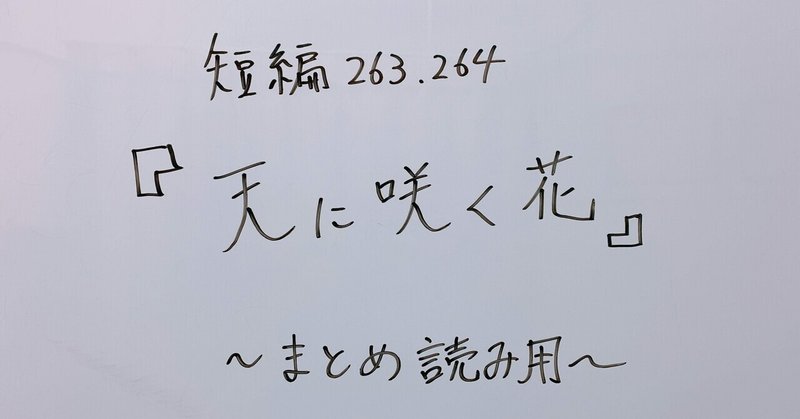 短編 263.264
『天に咲く花』
〜まとめ読み用〜